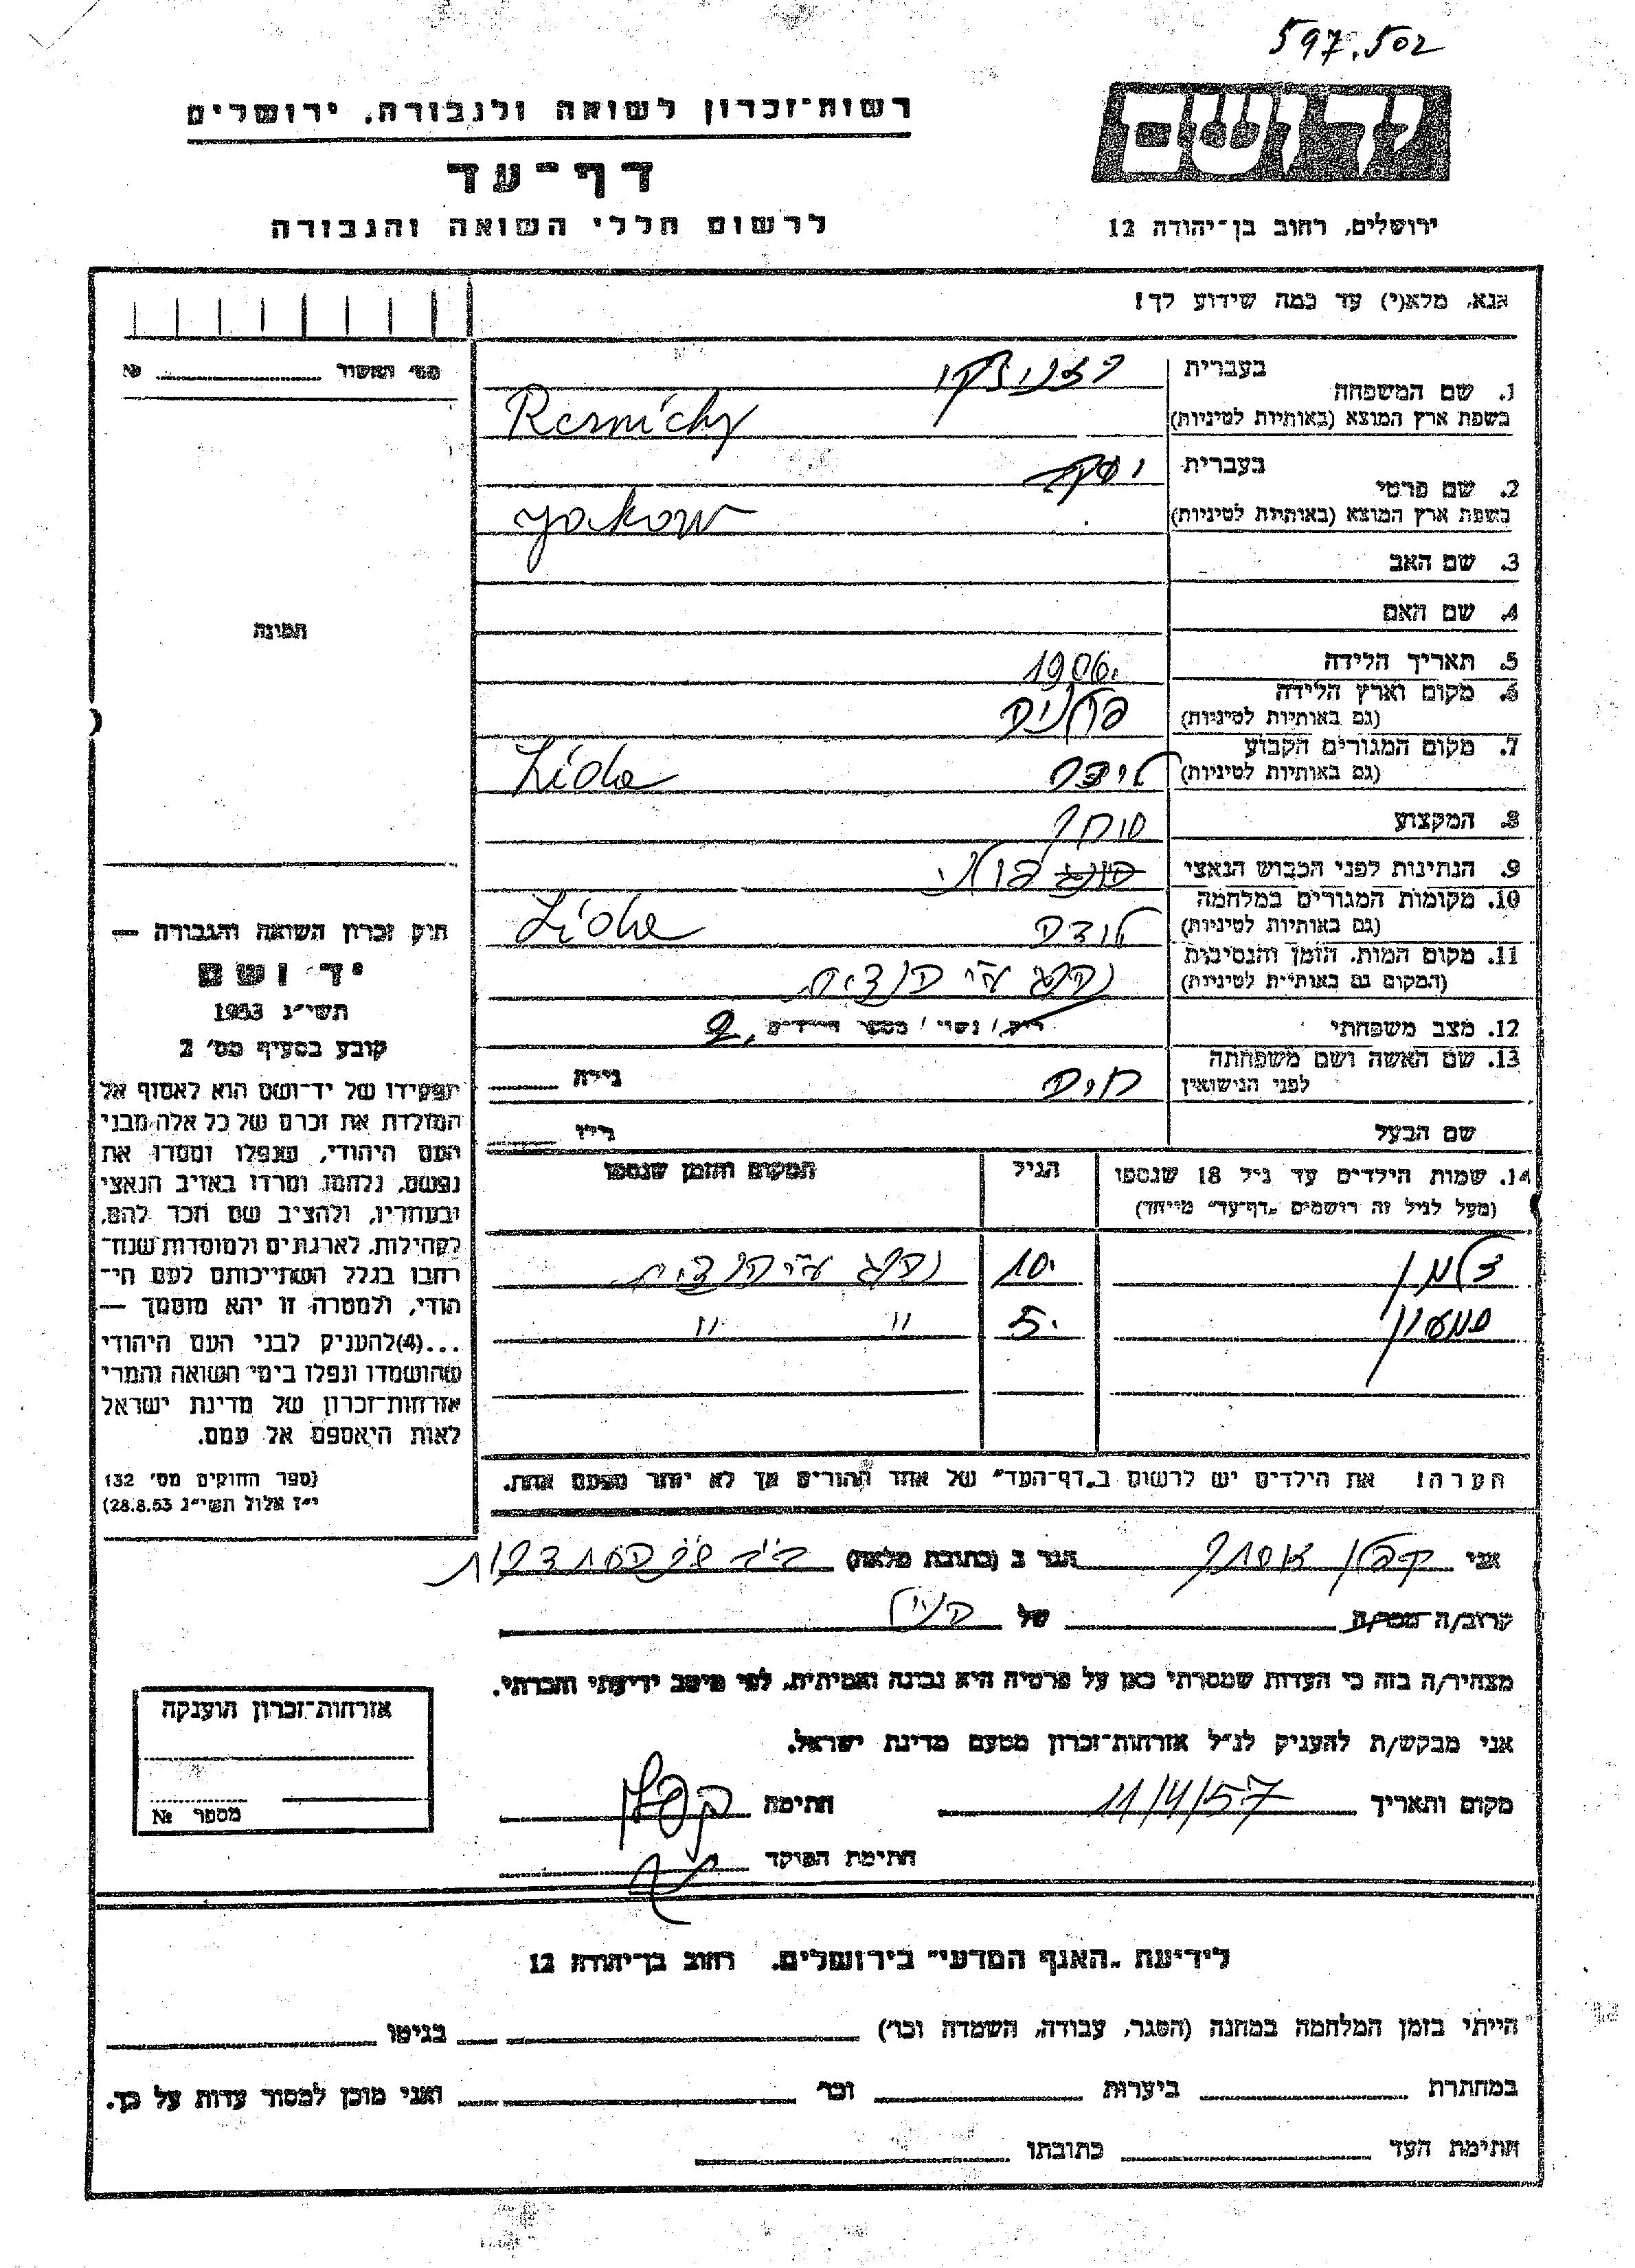 597.502
רשות-זכרון לשואה ולגבורה, ירושלים
יד ושם
דף-עד
לרשום חללי השואה והגבורה
ירושלים, רחוב בן-יהודה 12
אנא, מלא(י) עד כמה שידוע לך!
מס' האשור № 
1. שם המשפחה בעברית רזניצקי
בשפת ארץ המוצא (באותיות לטיניות) Resnichy
2. שם פרטי בעברית יעקב
בשפת ארץ המוצא (באותיות לטיניות) Jakow
3. שם האב
4. שם האם
תמונה
5. תאריך הלידה 1906.
6. מקום וארץ הלידה (גם באותיות לטיניות) פולניה
7. מקום המגורים הקבוע (גם באותיות לטיניות) לידה Lida
8. המקצוע סוחר
9. הנתינות לפני הכבוש הנאצי פולני
10. מקומות המגורים במלחמה (גם באותיות לטיניות) לידה Lida
11. מקום המות, הזמן והנסיבות (המקום גם באותיות לטיניות) נהרג ע"י הנאצים
12. מצב משפחתי רוק / נשוי / מספר הילדים 2
13. שם האשה ושם משפחתה לפני הנישואין חיה גילה
שם הבעל גילו
14. שמות הילדים עד גיל 18 שנספו הגיל המקום והזמן שנספו
(מעל לגיל זה רושמים "דף-עד" מייחד)
זלמן 10. נהרג ע"י הנאצים
שמעון 5. " "
הערה! את הילדים יש לרשום ב"דף-העד" של אחד ההורים אך לא יותר מפעם אחת.
תיק זכרון השואה והגבורה —
יד ושם
תשי"ג 1953
קובע בסעיף מס' 2
תפקידו של יד-ושם הוא לאסוף אל
המולדת את זכרם של כל אלה מבני
העם היהודי, שנפלו ומסרו את
נפשם, נלחמו ומרדו באויב הנאצי
ובעוזריו, ולהציב שם וזכר להם,
לקהילות, לארגונים ולמוסדות שנח-
רבו בגלל השתייכותם לעם הי-
הודי, ולמטרה זו יהא מוסמך —
...(4) להעניק לבני העם היהודי
שהושמדו ונפלו בימי השואה והמרי
אזרחות-זכרון של מדינת ישראל
לאות היאספם אל עמם.
(ספר החוקים מס' 132
י"ז אלול תשי"ג 28.8.53)
אני קפלן אסתר הגר ב (כתובת מלאה)
קרוב/ה מכר/ה של הנ"ל
מצהיר/ה בזה כי העדות שמסרתי כאן על פרטיה היא נכונה ואמיתית, לפי מיטב ידיעתי והכרתי.
אני מבקש/ת להעניק לנ"ל אזרחות-זכרון מטעם מדינת ישראל.
מקום ותאריך 11/4/57 חתימה קפלן
חתימת הפוקד
אזרחות-זכרון הוענקה
מספר №
לידיעת "האגף המדעי" בירושלים, רחוב בן-יהודה 12
הייתי בזמן המלחמה במחנה (הסגר, עבודה, השמדה וכו') בגיטו
במחתרת ביערות וכו' ואני מוכן למסור עדות על כך.
חתימת העד כתובתו